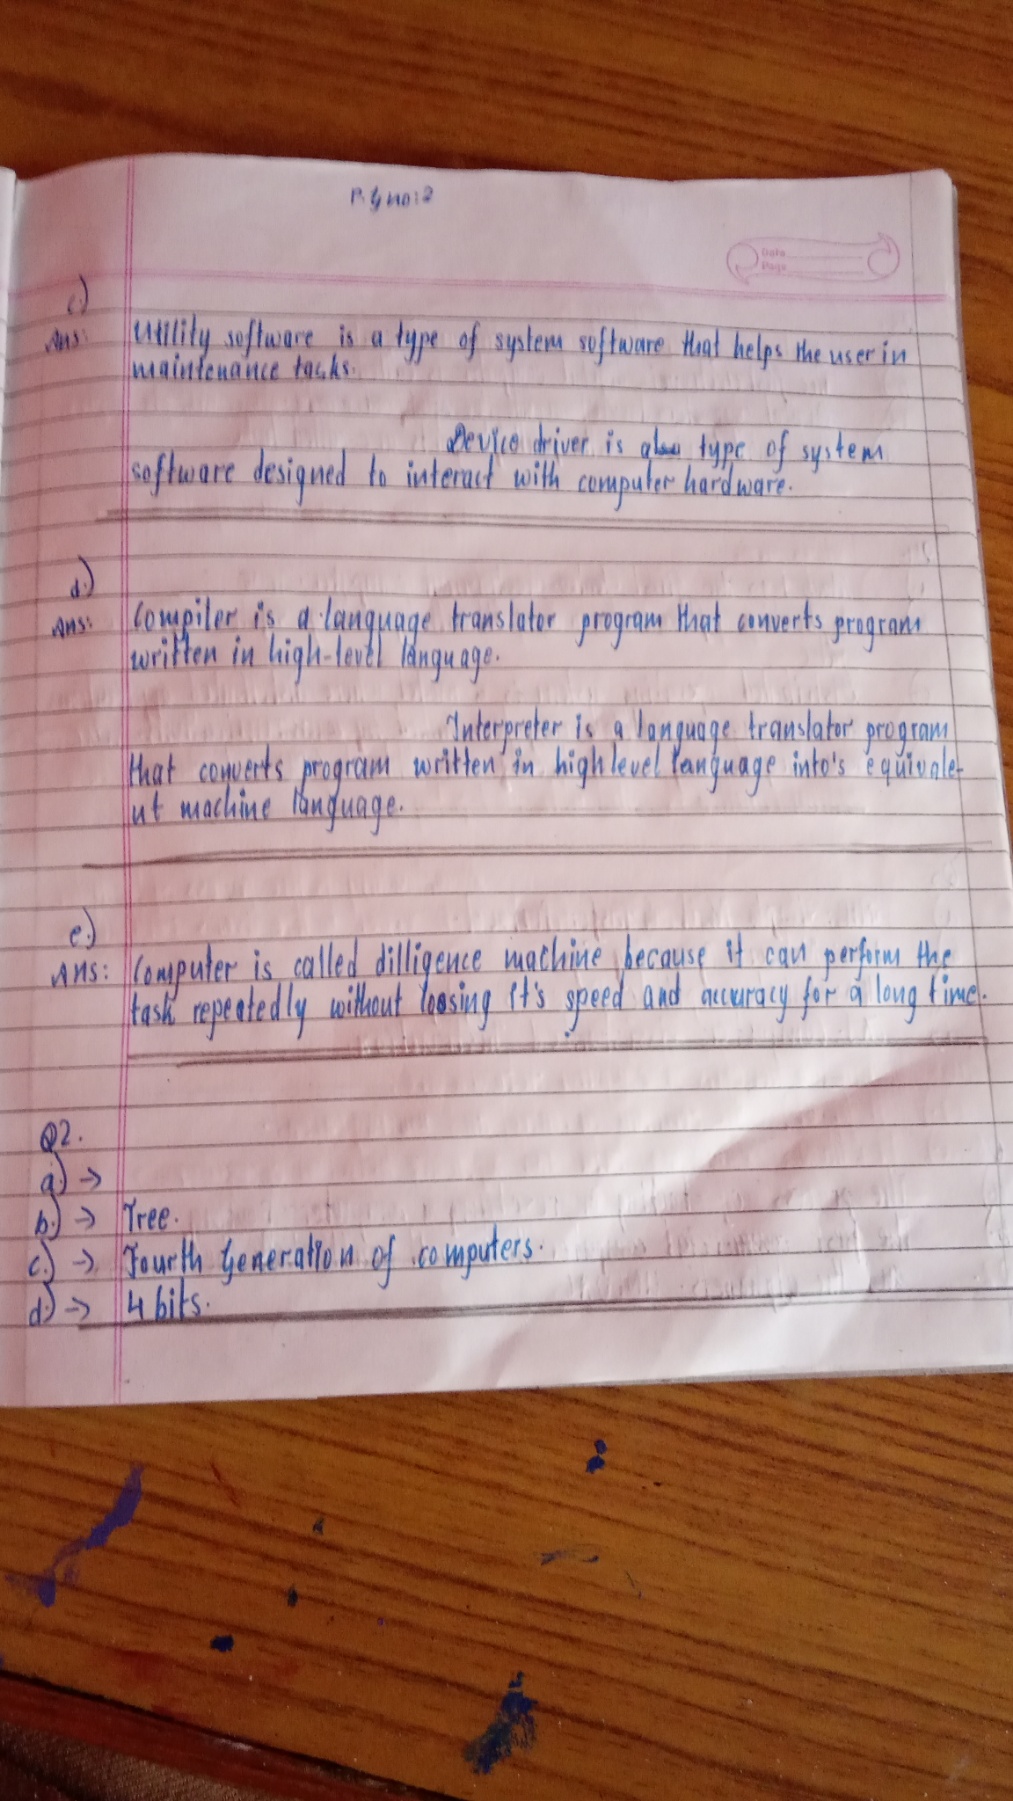 Pg no:2
Date
Page
c.)
Ans: Utility software is a type of system software that helps the user in
maintenance tasks.
Device driver is also type of system
software designed to interact with computer hardware.
d.)
Ans: Compiler is a language translator program that converts program
written in high-level language.
Interpreter is a language translator program
that converts program written in high level language into's equivale-
nt machine language.
e.)
Ans: Computer is called dilligence machine because it can perform the
task repeatedly without loosing it's speed and accuracy for a long time.
Q2.
a.) →
b.) → Tree.
c.) → Fourth Generation of computers.
d.) → 4 bits.